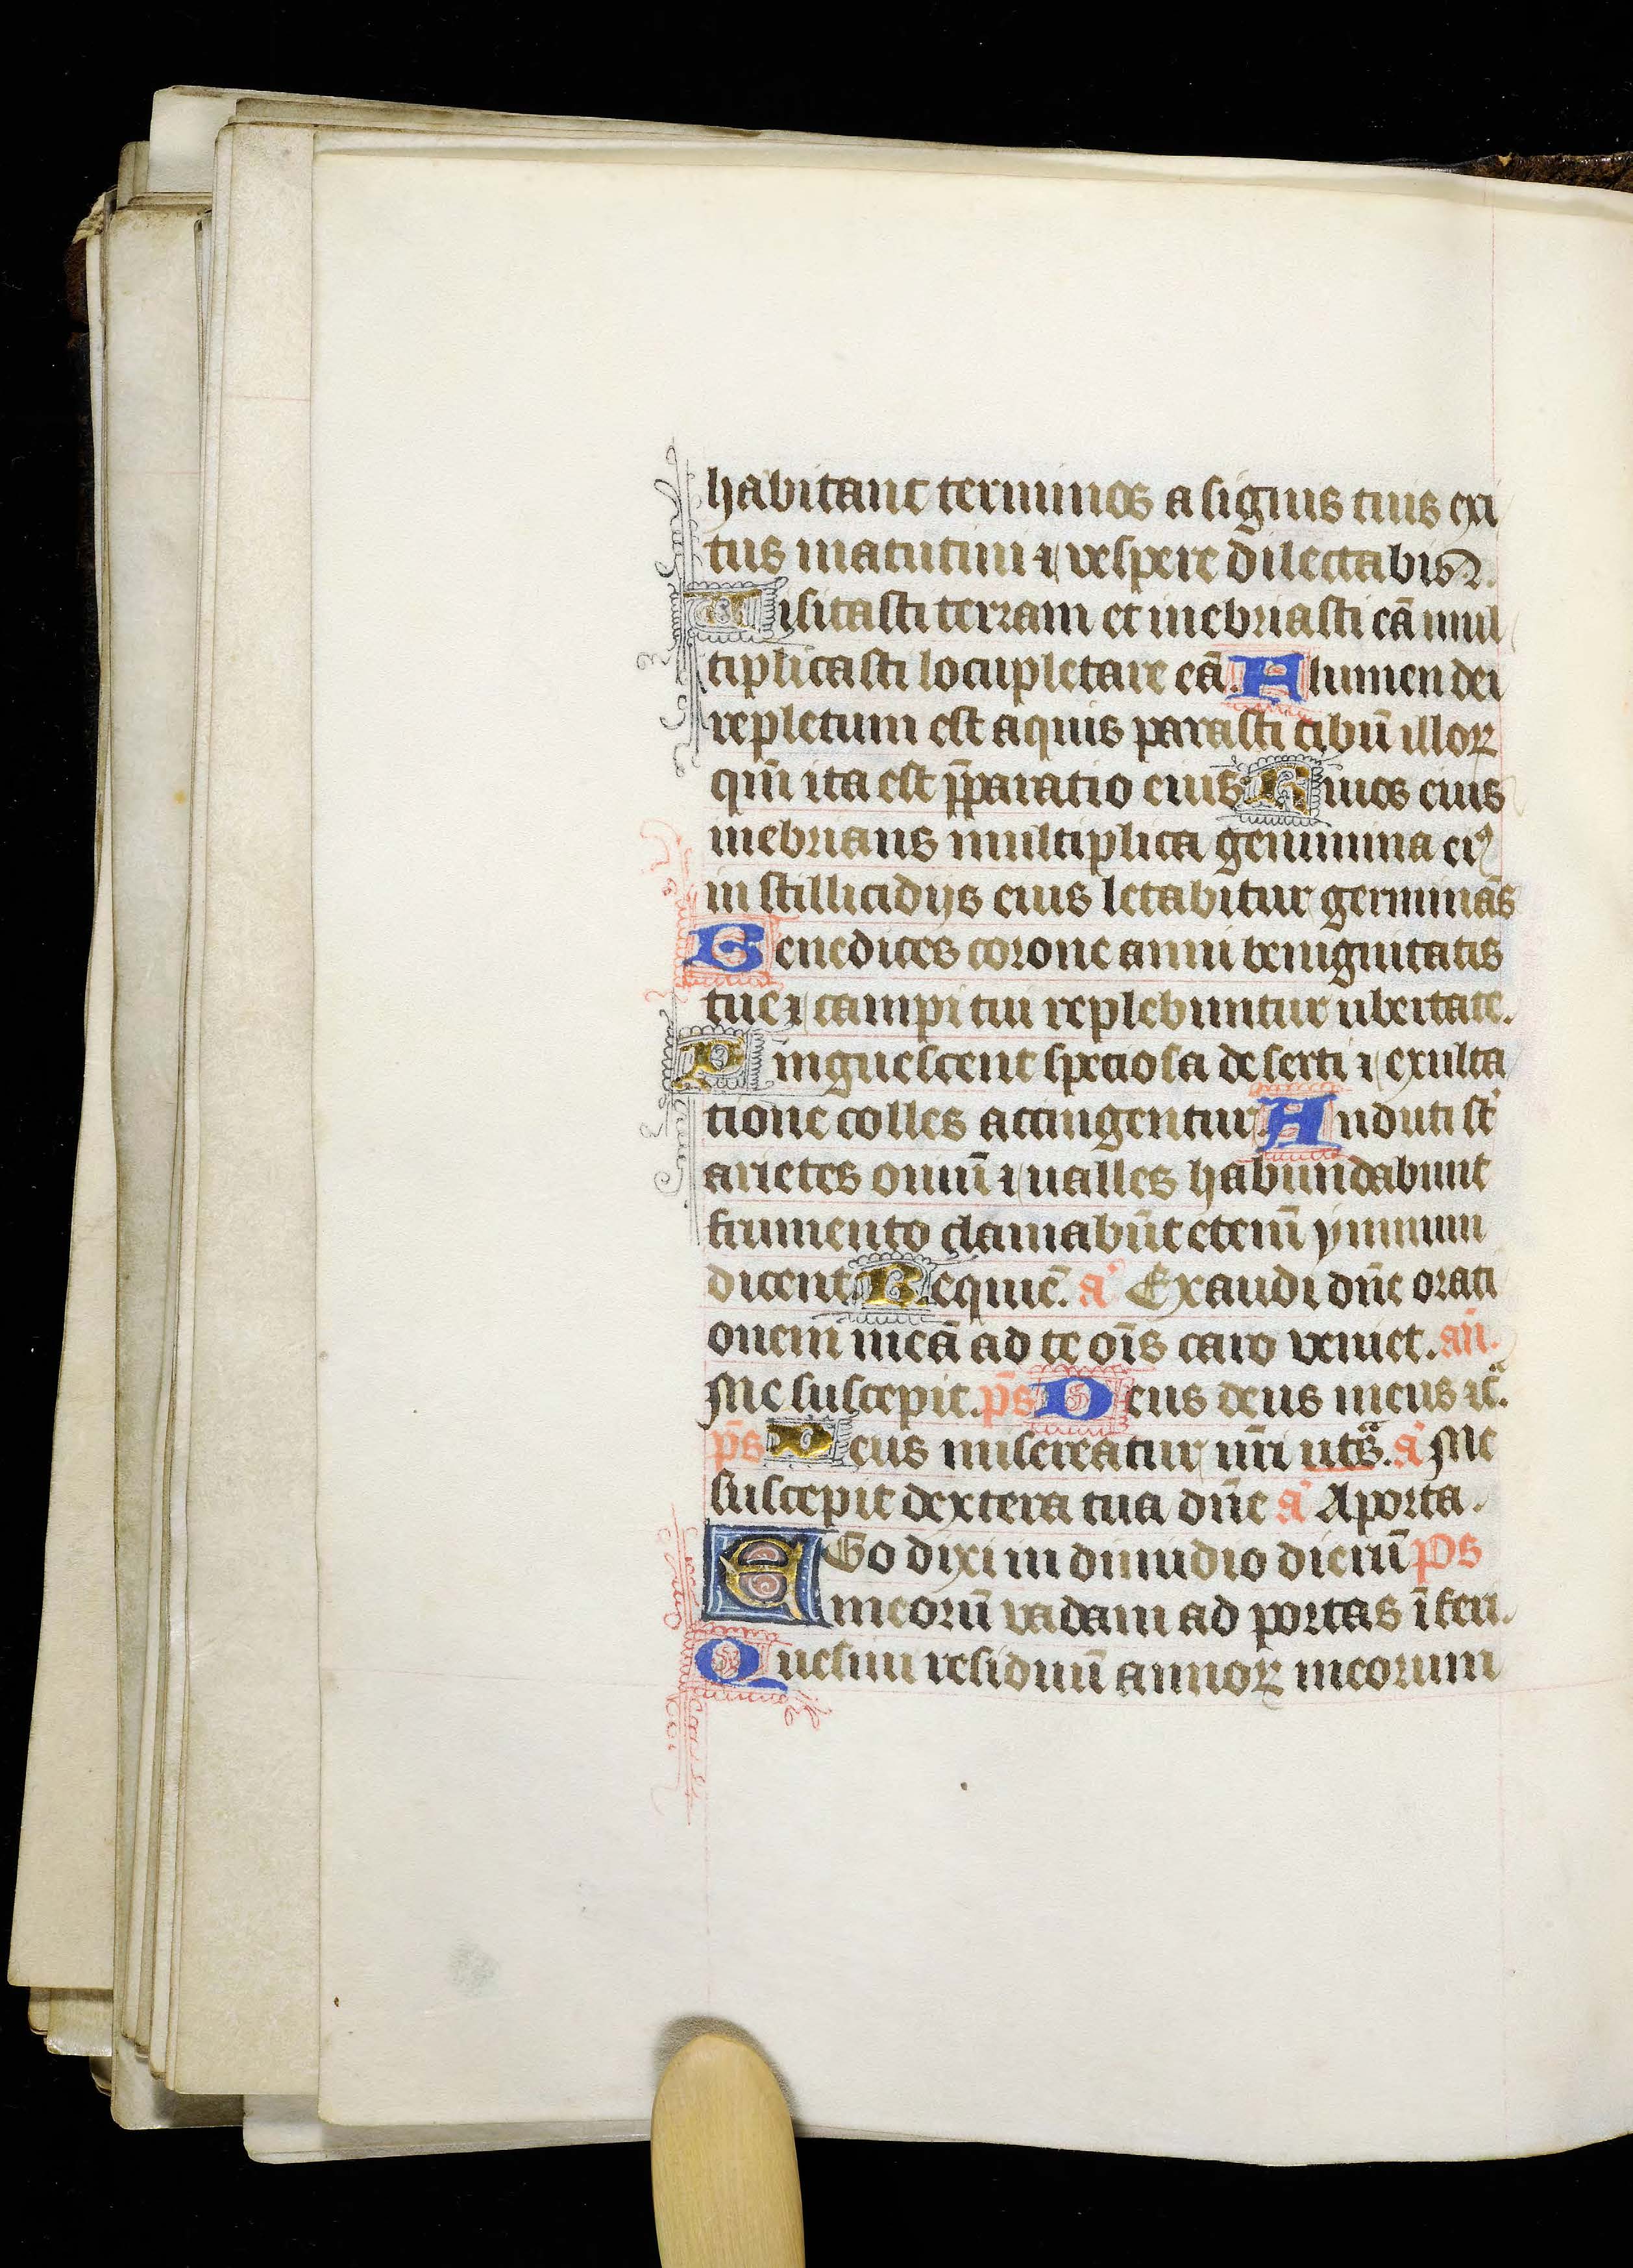 habitant terminos a signis tuis exi
tus matutini ⁊ vespere dilectabis.
Visitasti terram et inebriasti eā mul
tiplicasti locupletare eā. Alumen dei
repletum est aquis parasti cibū illoꝝ
qm̄ ita est p̄paratio eius Riuos eius
inebrians multiplica genimina eiꝰ
in stillicidijs eius letabitur germinās
Benedices corone anni benignitatis
tue ⁊ campi tui replebuntur ubertate.
Pinguescent speciosa deserti ⁊ exulta
tione colles accingentur. Anduti st̄
arietes ouiū ⁊ ualles habundabunt
frumento clamabūt etenī ymnum
dicent Requiē. a Exaudi dn̄e orati
onem meā ad te oīs caro veniet. an̄.
Me suscepit. ps̄ Deus deus meus ⁊c̄.
ps̄ Deus misereatur nr̄i ut sª. a Me
suscepit dextera tua dn̄e a Aporta.
EGo dixi in dimidio dierū ps
meorū vadam ad portas īferi.
Quesiui residuū annoꝝ meorum